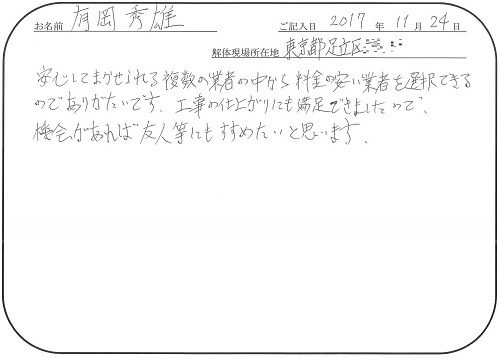 お名前 有岡 秀雄 ご記入日 2017 年 11 月 24 日
解体現場所在地 東京都足立区
安心してまかせられる複数の業者の中から料金の安い業者を選択できる
のでありがたいです。工事の仕上がりにも満足できましたので、
機会があれば友人等にもすすめたいと思います。